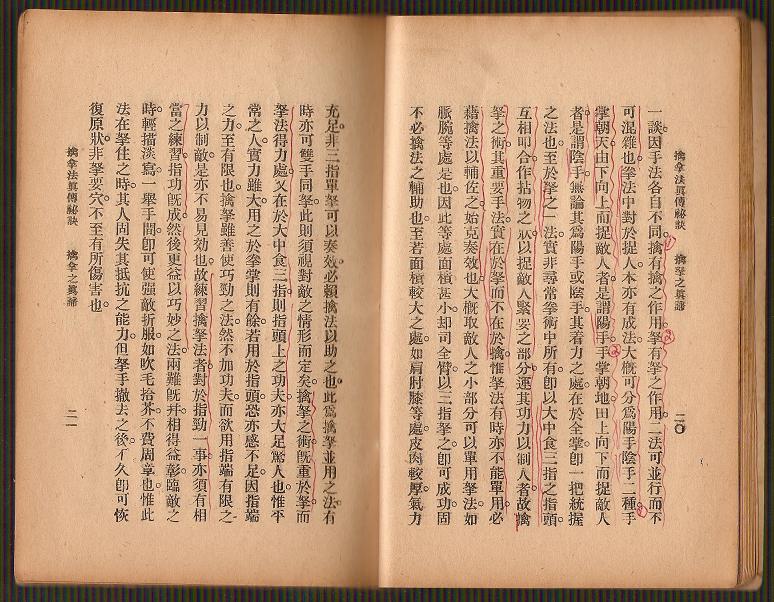 擒拿法眞傳祕訣　擒拏之眞諦　二〇
一談。因手法各自不同。擒有擒之作用。拏有拏之作用。二法可並行而不
可混雜也。拳法中對於捉人。本亦有成法。大槪可分爲陽手陰手二種。手
掌朝天。由下向上而捉敵人者。是謂陽手。手掌朝地。由上向下而捉敵人
者。是謂陰手。無論其爲陽手或陰手。其着力之處。在於全掌。卽一把統握
之法也。至於拏之一法。實非尋常拳術中所有。卽以大中食三指之指頭。
互相叩合。作拑物之狀。以捉敵人緊要之部分。運其功力以制人者。故擒
拏之術。其重要手法。實在於拏而不在於擒。惟拏法有時亦不能單用。必
藉擒法以輔佐之。始克奏效也。大槪取敵人之小部分。可以單用拏法。如
脈腕等處是也。因此等處面積甚小。却司全臂。以三指拏之。卽可成功。固
不必擒法之輔助也。至若面積較大之處。如肩肘膝等處。皮肉較厚。氣力
充足。非三指單拏可以奏效。必賴擒法以助之也。此爲擒拏並用之法。有
時亦可雙手同拏。此則須視對敵之情形而定矣。擒拏之術。旣重於拏。而
拏法得力處。又在於大中食三指。則指頭上之功夫。亦大足驚人也。惟平
常之人。實力雖大。用之於拳掌則有餘。若用於指頭。恐亦感不足。因指端
之力。至有限也。擒拏雖善使巧勁之法。然不加功夫。而欲用指端有限之
力以制敵。是亦不易見効也。故練習擒拏法者。對於指勁一事。亦須有相
當之練習。指功旣成。然後更益以巧妙之法。兩難旣幷。相得益彰。臨敵之
時。輕描淡寫。一舉手間。卽可使强敵折服。如吹毛拾芥。不費周章也。惟此
法在拏住之時。其人固失其抵抗之能力。但拏手撤去之後。不久卽可恢
復原狀。非拏要穴。不至有所傷害也。
擒拿法眞傳祕訣　擒拿之眞諦　二一